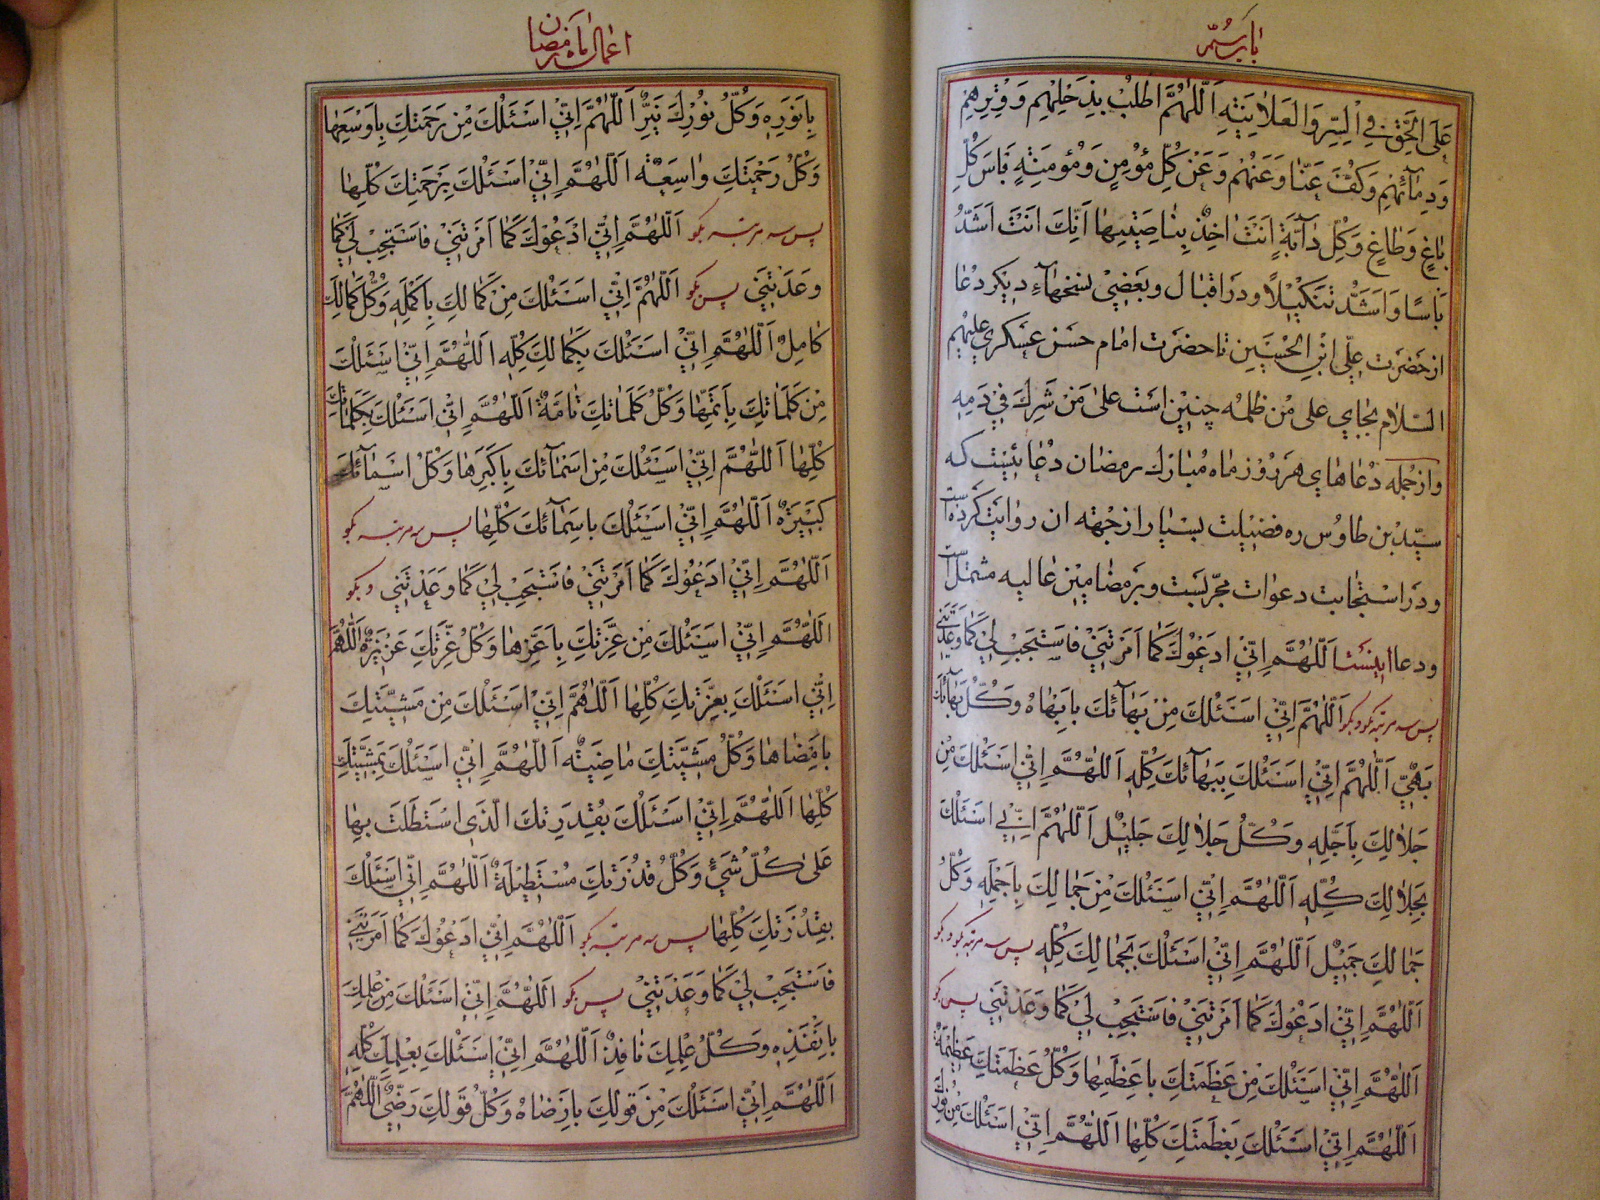 باب سیم
عَلَى الْحَقِّ فِي السِّرِّ وَالْعَلَانِيَتِهِ اَللّٰهُمَّ اطْلُبْ بِذَحْلِهِمْ وَوِتْرِهِمْ
وَدِمَآئِهِمْ وَكُفَّ عَنَّا وَعَنْهُمْ وَعَنْ كُلِّ مُؤْمِنٍ وَمُؤْمِنَتِهٍ بَاْسَ كُلِّ
بَاغٍ وَطَاغٍ وَكُلِّ دَآبَّةٍ اَنْتَ اٰخِذٌ بِنَاصِيَتِهَا اِنَّكَ اَنْتَ اَشَدُّ
بَاْسًا وَاَشَدُّ تَنْكِيْلًا ودر اقبال وبعضی نسخهاء دیکر دعا
از حضرت علی ابن الحسین تا حضرت امام حسن عسکری علیهم
السلام بجای علی من ظلمه چنین است على من شرك في دمه
واز جمله دعاهای هر روز ماه مبارک رمضان دعائیست که
سید بن طاوس ره فضیلت بسیار از جهته ان روایت کرده است
ودر استجابت دعوات مجربست وبر مضامین عالیه مشتمل است
ودعا اینست اَللّٰهُمَّ اِنِّيْ اَدْعُوْكَ كَمَا اَمَرْتَنِيْ فَاسْتَجِبْ لِيْ كَمَا وَعَدْتَنِيْ
پس سه مرتبه بکو وبکو اَللّٰهُمَّ اِنِّيْ اَسْئَلُكَ مِنْ بَهَآئِكَ بِاَبْهَاهُ وَكُلُّ بَهَآئِكَ
بَهِيٌّ اَللّٰهُمَّ اِنِّيْ اَسْئَلُكَ بِبَهَآئِكَ كُلِّهِ اَللّٰهُمَّ اِنِّيْ اَسْئَلُكَ مِنْ
جَلَالِكَ بِاَجَلِّهِ وَكُلُّ جَلَالِكَ جَلِيْلٌ اَللّٰهُمَّ اِنِّيْ اَسْئَلُكَ
بِجَلَالِكَ كُلِّهِ اَللّٰهُمَّ اِنِّيْ اَسْئَلُكَ مِنْ جَمَالِكَ بِاَجْمَلِهِ وَكُلُّ
جَمَالِكَ جَمِيْلٌ اَللّٰهُمَّ اِنِّيْ اَسْئَلُكَ بِجَمَالِكَ كُلِّهِ پس سه مرتبه بکو وبکو
اَللّٰهُمَّ اِنِّيْ اَدْعُوْكَ كَمَا اَمَرْتَنِيْ فَاسْتَجِبْ لِيْ كَمَا وَعَدْتَنِيْ پس بکو
اَللّٰهُمَّ اِنِّيْ اَسْئَلُكَ مِنْ عَظَمَتِكَ بِاَعْظَمِهَا وَكُلُّ عَظَمَتِكَ عَظِيْمَةٌ
اَللّٰهُمَّ اِنِّيْ اَسْئَلُكَ بِعَظَمَتِكَ كُلِّهَا اَللّٰهُمَّ اِنِّيْ اَسْئَلُكَ مِنْ نُوْرِكَ
اعمال ماه رمضان
بِاَنْوَرِهِ وَكُلُّ نُوْرِكَ نَيِّرٌ اَللّٰهُمَّ اِنِّيْ اَسْئَلُكَ مِنْ رَحْمَتِكَ بِاَوْسَعِهَا
وَكُلُّ رَحْمَتِكَ وَاسِعَةٌ اَللّٰهُمَّ اِنِّيْ اَسْئَلُكَ بِرَحْمَتِكَ كُلِّهَا
پس سه مرتبه بکو اَللّٰهُمَّ اِنِّيْ اَدْعُوْكَ كَمَا اَمَرْتَنِيْ فَاسْتَجِبْ لِيْ كَمَا
وَعَدْتَنِيْ پس بکو اَللّٰهُمَّ اِنِّيْ اَسْئَلُكَ مِنْ كَمَالِكَ بِاَكْمَلِهِ وَكُلُّ كَمَالِكَ
كَامِلٌ اَللّٰهُمَّ اِنِّيْ اَسْئَلُكَ بِكَمَالِكَ كُلِّهِ اَللّٰهُمَّ اِنِّيْ اَسْئَلُكَ
مِنْ كَلِمَاتِكَ بِاَتَمِّهَا وَكُلُّ كَلِمَاتِكَ تَامَّةٌ اَللّٰهُمَّ اِنِّيْ اَسْئَلُكَ بِكَلِمَاتِكَ
كُلِّهَا اَللّٰهُمَّ اِنِّيْ اَسْئَلُكَ مِنْ اَسْمَآئِكَ بِاَكْبَرِهَا وَكُلُّ اَسْمَآئِكَ
كَبِيْرَةٌ اَللّٰهُمَّ اِنِّيْ اَسْئَلُكَ بِاَسْمَآئِكَ كُلِّهَا پس سه مرتبه بکو
اَللّٰهُمَّ اِنِّيْ اَدْعُوْكَ كَمَا اَمَرْتَنِيْ فَاسْتَجِبْ لِيْ كَمَا وَعَدْتَنِيْ وبکو
اَللّٰهُمَّ اِنِّيْ اَسْئَلُكَ مِنْ عِزَّتِكَ بِاَعَزِّهَا وَكُلُّ عِزَّتِكَ عَزِيْزَةٌ اَللّٰهُمَّ
اِنِّيْ اَسْئَلُكَ بِعِزَّتِكَ كُلِّهَا اَللّٰهُمَّ اِنِّيْ اَسْئَلُكَ مِنْ مَشِيَّتِكَ
بِاَمْضَاهَا وَكُلُّ مَشِيَّتِكَ مَاضِيَةٌ اَللّٰهُمَّ اِنِّيْ اَسْئَلُكَ بِمَشِيَّتِكَ
كُلِّهَا اَللّٰهُمَّ اِنِّيْ اَسْئَلُكَ بِقُدْرَتِكَ الَّذِي اسْتَطَلْتَ بِهَا
عَلٰى كُلِّ شَيْءٍ وَكُلُّ قُدْرَتِكَ مُسْتَطِيْلَةٌ اَللّٰهُمَّ اِنِّيْ اَسْئَلُكَ
بِقُدْرَتِكَ كُلِّهَا پس سه مرتبه بکو اَللّٰهُمَّ اِنِّيْ اَدْعُوْكَ كَمَا اَمَرْتَنِيْ
فَاسْتَجِبْ لِيْ كَمَا وَعَدْتَنِيْ پس بکو اَللّٰهُمَّ اِنِّيْ اَسْئَلُكَ مِنْ عِلْمِكَ
بِاَنْفَذِهِ وَكُلُّ عِلْمِكَ نَافِذٌ اَللّٰهُمَّ اِنِّيْ اَسْئَلُكَ بِعِلْمِكَ كُلِّهِ
اَللّٰهُمَّ اِنِّيْ اَسْئَلُكَ مِنْ قَوْلِكَ بِاَرْضَاهُ وَكُلُّ قَوْلِكَ رَضِيٌّ اَللّٰهُمَّ